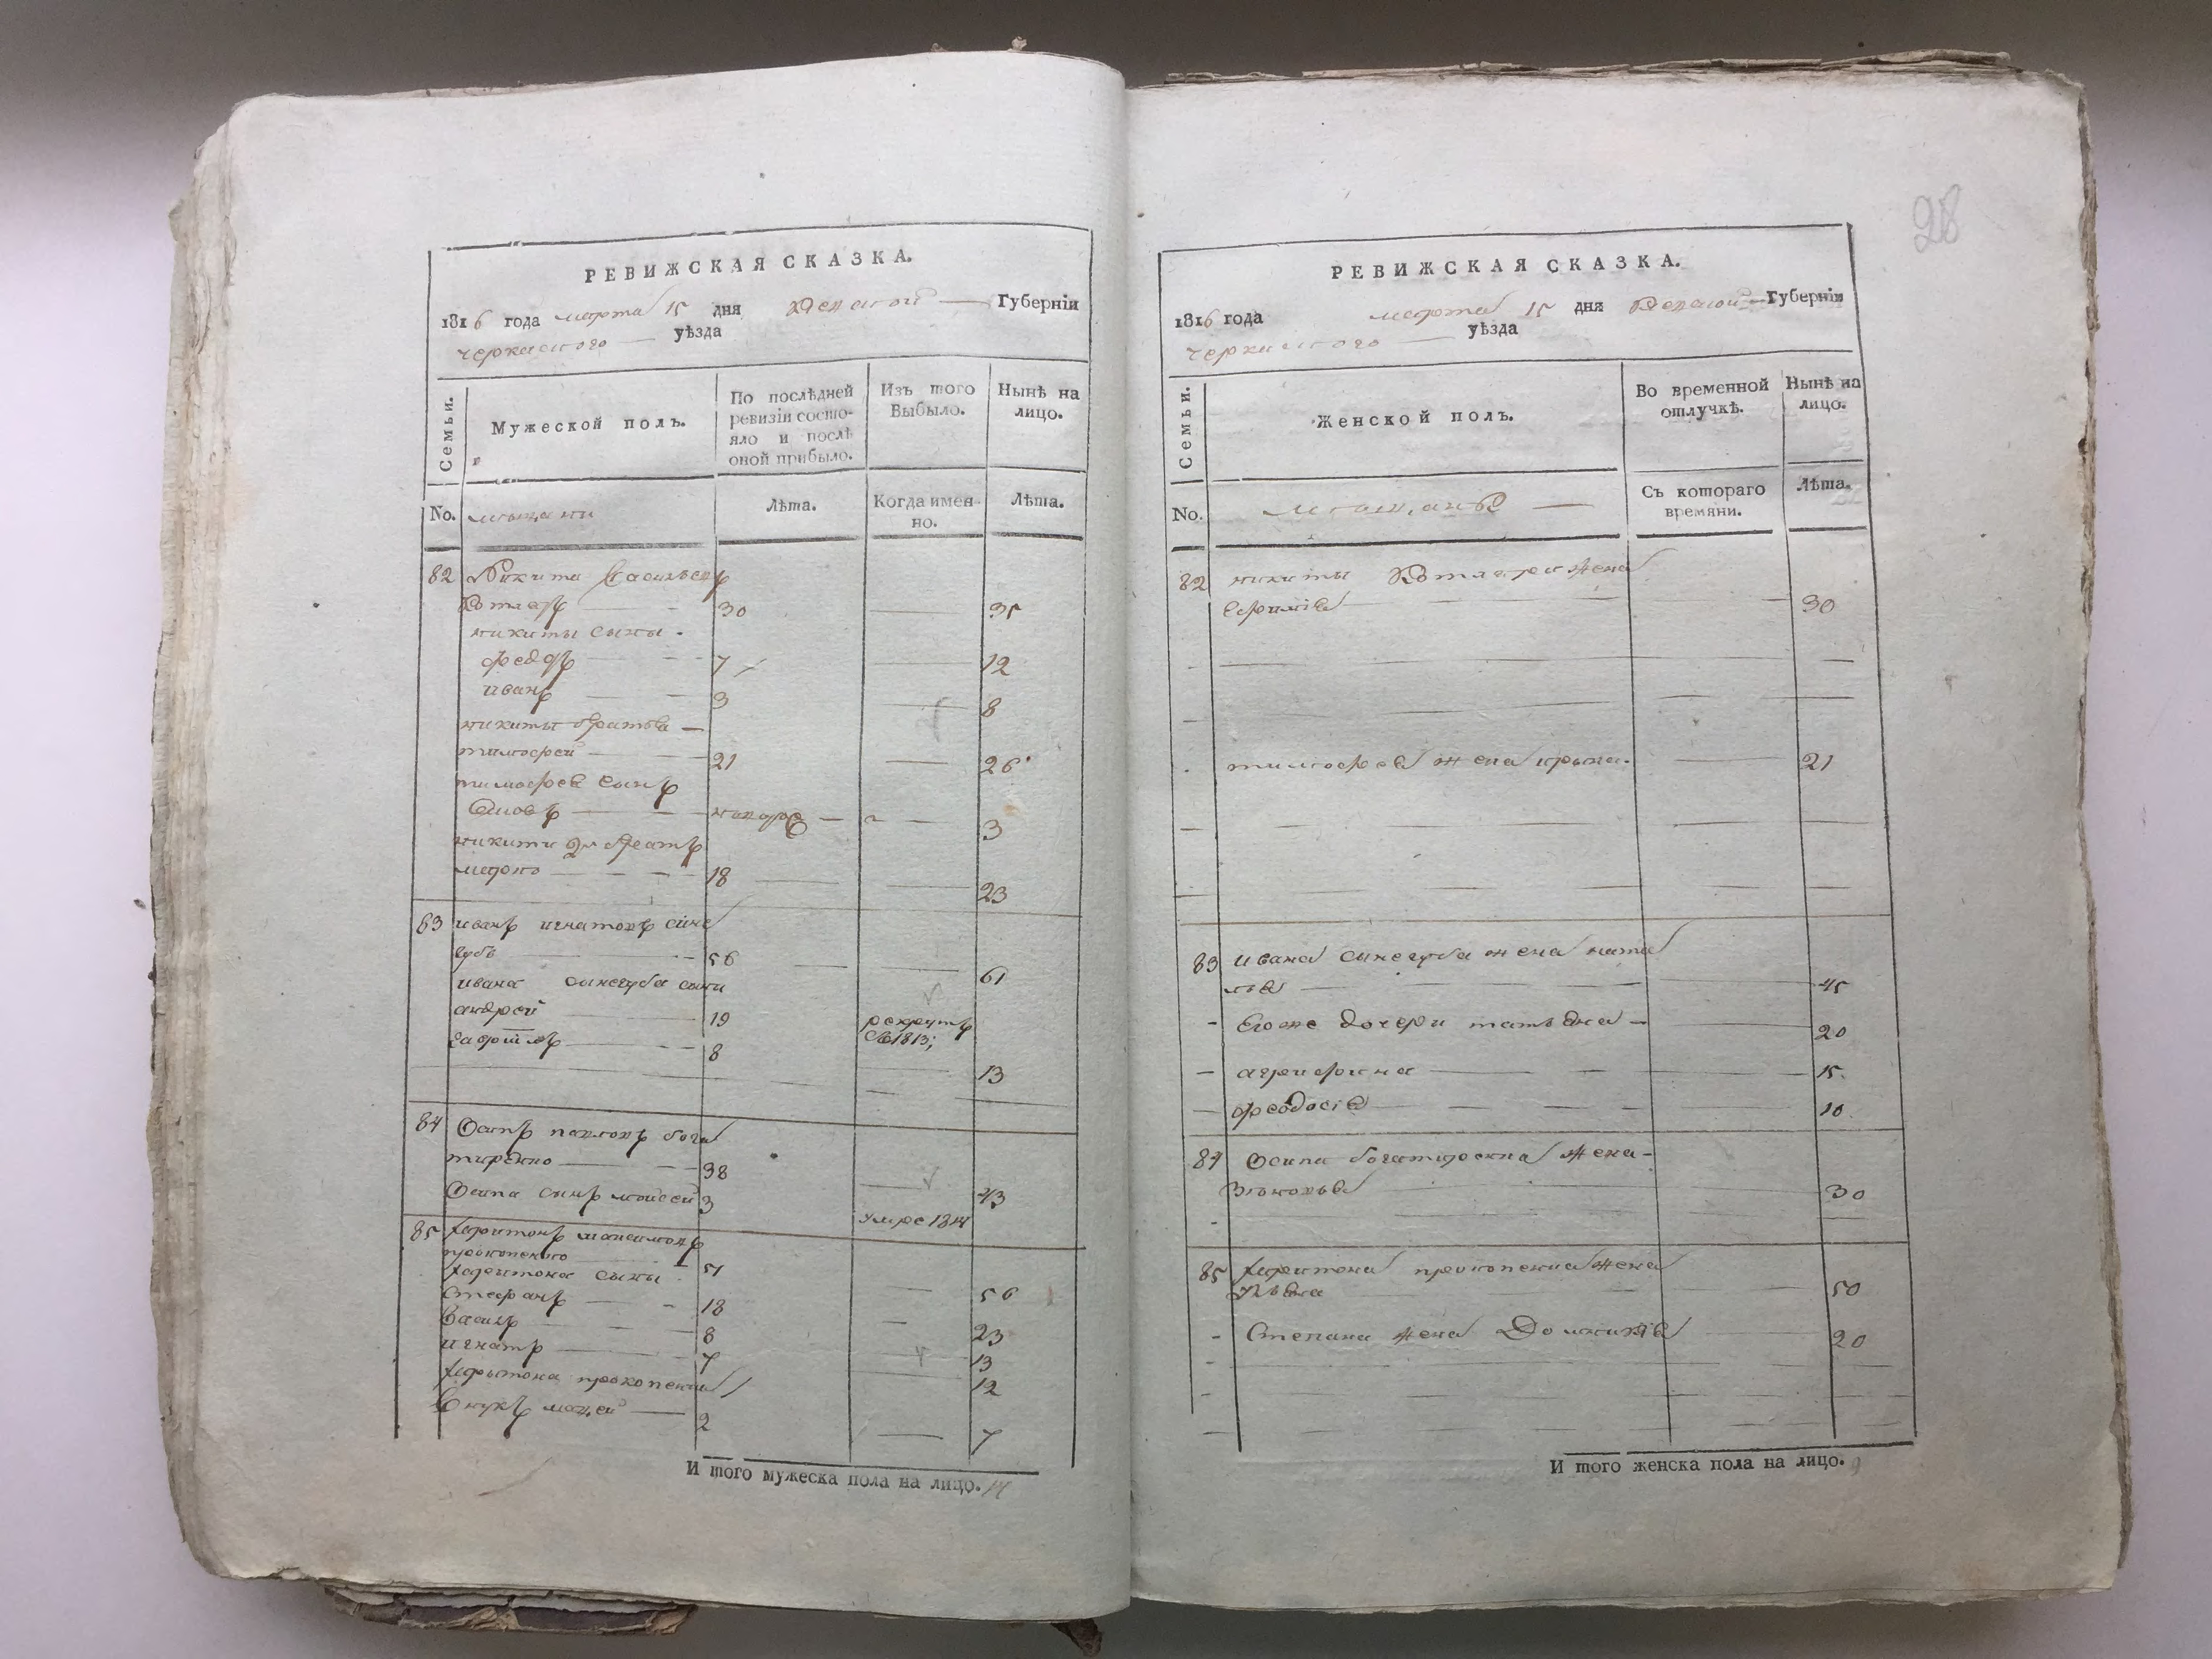 РЕВИЖСКАЯ СКАЗКА.
1816 года марта 15 дня Губерніи
черкаского уѣзда
Семьи.
Мужеской полъ.
По послѣдней ревизіи состо-
яло и послѣ оной прибыло.
Изъ того Выбыло.
Нынѣ на лицо.
No. мещани
Лѣта.
Когда имен-
но.
Лѣта.
82 Никита
Котляръ 30 35
никиты сыны
федоръ 7 12
иванъ 3 8
никиты братья
тимофей 21 26
тимофея сынъ
3
никиты 2й братъ
марко 18 23
83 иванъ игнатовъ сине
губъ 56 61
ивана синегуба сыни
андрей 19 рекрутъ
в 1813;
гаврiилъ 8 13
84 Осипъ павловъ бога
тиренко 38 43
Осипа сынъ мойсей 3 умре 1814
85 харитонъ максимовъ
прокопенко 51 56
харитона сыны
стефанъ 18 23
василь 8 13
игнатъ 7 12
харитона прокопенка
внукъ 2 7
И того мужеска пола на лицо. 14
28
РЕВИЖСКАЯ СКАЗКА.
1816 года марта 15 дня Губерніи
черкаского уѣзда
Семьи.
Женской полъ.
Во временной отлучкѣ.
Нынѣ на лицо.
No.
Съ котораго времяни.
Лѣта.
82 никиты Котляра жена
30
тимофея жена ирина 21
83 ивана синегуба жена ната
лья 45
Его же дочери татьяна 20
агрифина 15
феодосія 10
84 Осипа богатиренка жена
30
85 харитона прокопенка жена
50
Степана жена Домникія 20
И того женска пола на лицо. 9